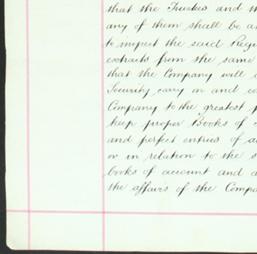 that the Trustees and
any of them shall be a
to inspect the said Regi
extracts from the same
that the Company will
Security carry on and co
Company to the greatest p
keep proper Books of
and perfect entries of a
or in relation to the s
books of account and a
the affairs of the Compa